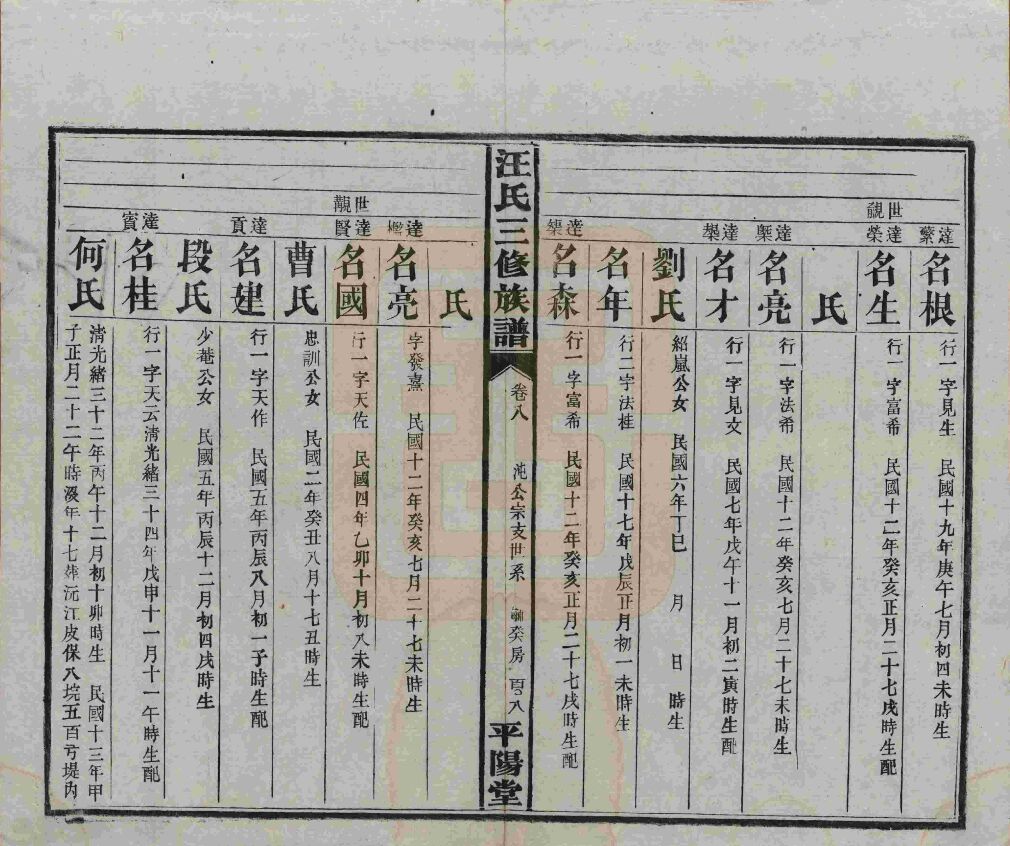 世覩
達繁
名根
行一字見生 民國十九年庚午七月初四未時生
達榮
名生
行一字富希 民國十二年癸亥正月二十七戌時生配
氏
達槩
名亮
行一字法希 民國十二年癸亥七月二十七未時生
達槼
名才
行一字見文 民國七年戊午十一月初二寅時生配
劉氏
紹嵐公女 民國六年丁巳 月 日 時生
名年
行二字法桂 民國十七年戊辰正月初一未時生
達
名森
行一字富希 民國十二年癸亥正月二十七戌時生配
汪氏三修族譜
卷八
沌公宗支世系
癸房
平陽堂
氏
達
名亮
字發熹 民國十二年癸亥七月二十七未時生
世覩
達賢
名國
行一字天佐 民國四年乙卯十月初八未時生配
曹氏
忠訓公女 民國二年癸丑八月十七丑時生
達貢
名建
行一字天作 民國五年丙辰八月初一子時生配
段氏
少菴公女 民國五年丙辰十二月初四戌時生
達賓
名桂
行一字天云清光緒三十四年戊申十一月十一午時生配
何氏
清光緒三十二年丙午十二月初十卯時生 民國十三年甲
子正月二十二午時沒年十七葬沅江皮保八垸五百弓堤內